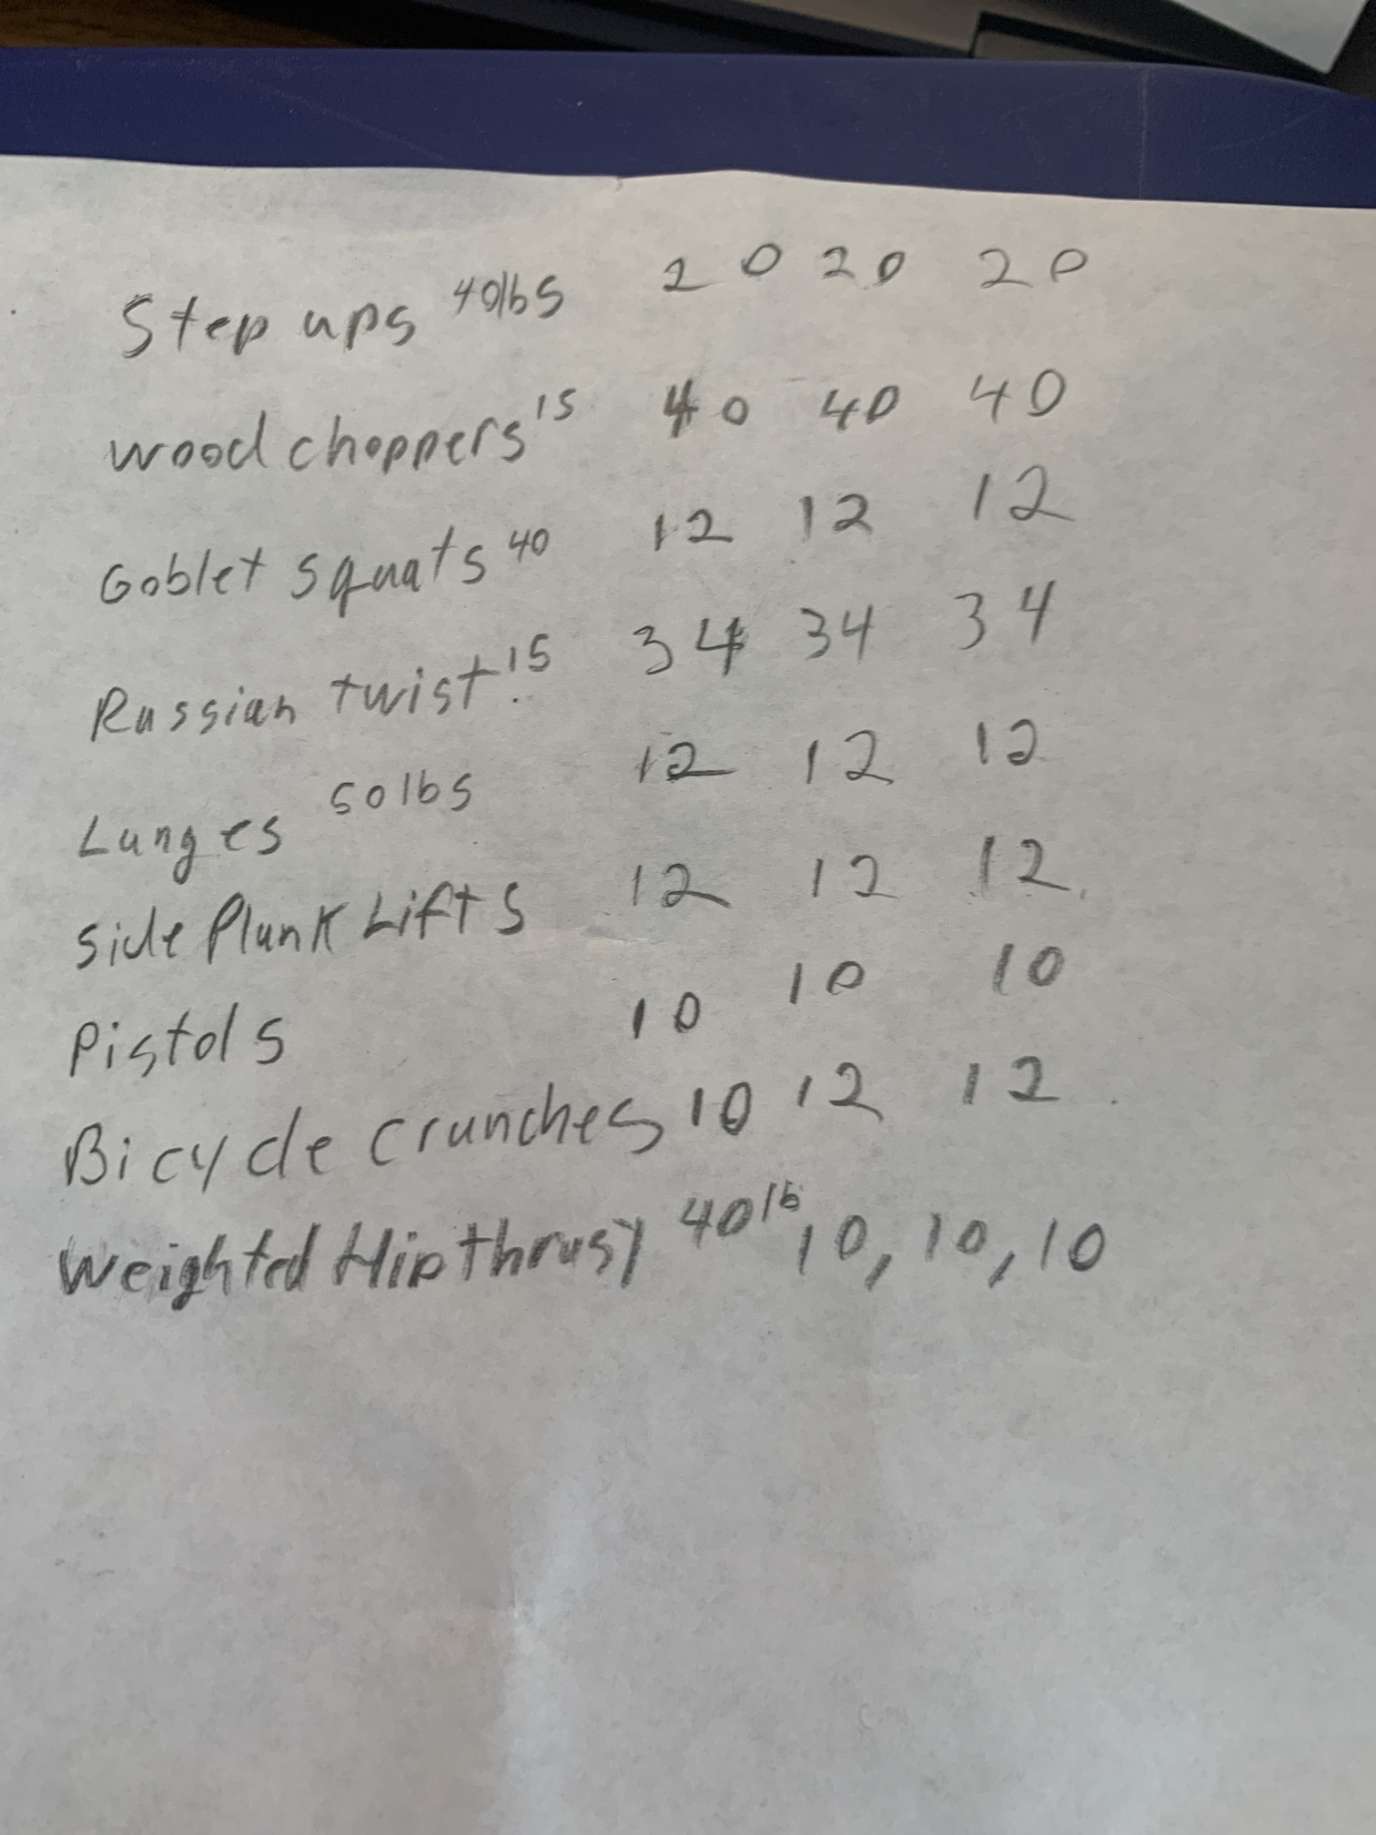 Step ups 40lbs 20 20 20
wood choppers 15 40 40 40
Goblet squats 40 12 12 12
Russian twist 15 34 34 34
Lunges 50lbs 12 12 12
side Plunk Lifts 12 12 12
Pistols 10 10 10
Bicycle crunches 10 12 12
Weighted Hip thrusy 40lb 10, 10, 10